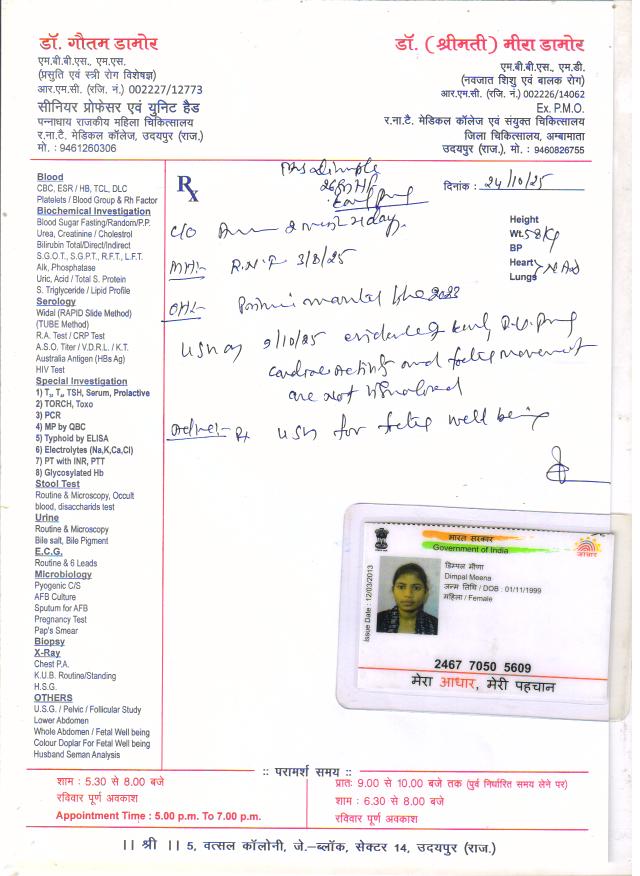 डॉ. गौतम डामोर
एम.बी.बी.एस., एम.एस.
(प्रसुति एवं स्त्री रोग विशेषज्ञ)
आर.एम.सी. (रजि. नं.) 002227/12773
सीनियर प्रोफेसर एवं युनिट हैड
पन्नाधाय राजकीय महिला चिकित्सालय
र.ना.टै. मेडिकल कॉलेज, उदयपुर (राज.)
मो. : 9461260306
डॉ. (श्रीमती) मीरा डामोर
एम.बी.बी.एस., एम.डी.
(नवजात शिशु एवं बालक रोग)
आर.एम.सी. (रजि. नं.) 002226/14062
Ex. P.M.O.
र.ना.टै. मेडिकल कॉलेज एवं संयुक्त चिकित्सालय
जिला चिकित्सालय, अम्बामाता
उदयपुर (राज.), मो. : 9460826755
Blood
CBC, ESR / HB, TCL, DLC
Platelets / Blood Group & Rh Factor
Biochemical Investigation
Blood Sugar Fasting/Random/P.P.
Urea, Creatinine / Cholestrol
Bilirubin Total/Direct/Indirect
S.G.O.T., S.G.P.T., R.F.T., L.F.T.
Alk, Phosphatase
Uric, Acid / Total S. Protein
S. Triglyceride / Lipid Profile
Serology
Widal (RAPID Slide Method)
(TUBE Method)
R.A. Test / CRP Test
A.S.O. Titer / V.D.R.L. / K.T.
Australia Antigen (HBs Ag)
HIV Test
Special Investigation
1) T₃, T₄, TSH, Serum, Prolactive
2) TORCH, Toxo
3) PCR
4) MP by QBC
5) Typhoid by ELISA
6) Electrolytes (Na,K,Ca,Cl)
7) PT with INR, PTT
8) Glycosylated Hb
Stool Test
Routine & Microscopy, Occult
blood, disaccharids test
Urine
Routine & Microscopy
Bile salt, Bile Pigment
E.C.G.
Routine & 6 Leads
Microbiology
Pyogenic C/S
AFB Culture
Sputum for AFB
Pregnancy Test
Pap's Smear
Biopsy
X-Ray
Chest P.A.
K.U.B. Routine/Standing
H.S.G.
OTHERS
U.S.G. / Pelvic / Follicular Study
Lower Abdomen
Whole Abdomen / Fetal Well being
Colour Doplar For Fetal Well being
Husband Seman Analysis
Rx
Mrs Dimple
दिनांक : 24/10/25
Height
Wt. 58 Kg
BP
Heart
Lungs NAD
C/O 2 day
MH:- 3/8/25
OH:- 2023
USG 9/10/25 evidence of early preg
cardiac activity and foetus movement
are not visualised
Advice:- Rx USG for foetus well being
भारत सरकार
Government of India
आधार
Issue Date : 12/03/2013
डिम्पल मीणा
Dimpal Meena
जन्म तिथि / DOB : 01/11/1999
महिला / Female
2467 7050 5609
मेरा आधार, मेरी पहचान
:: परामर्श समय ::
शाम : 5.30 से 8.00 बजे
रविवार पूर्ण अवकाश
Appointment Time : 5.00 p.m. To 7.00 p.m.
प्रातः 9.00 से 10.00 बजे तक (पुर्व निर्धारित समय लेने पर)
शाम : 6.30 से 8.00 बजे
रविवार पूर्ण अवकाश
|| श्री || 5, वत्सल कॉलोनी, जे.–ब्लॉक, सेक्टर 14, उदयपुर (राज.)